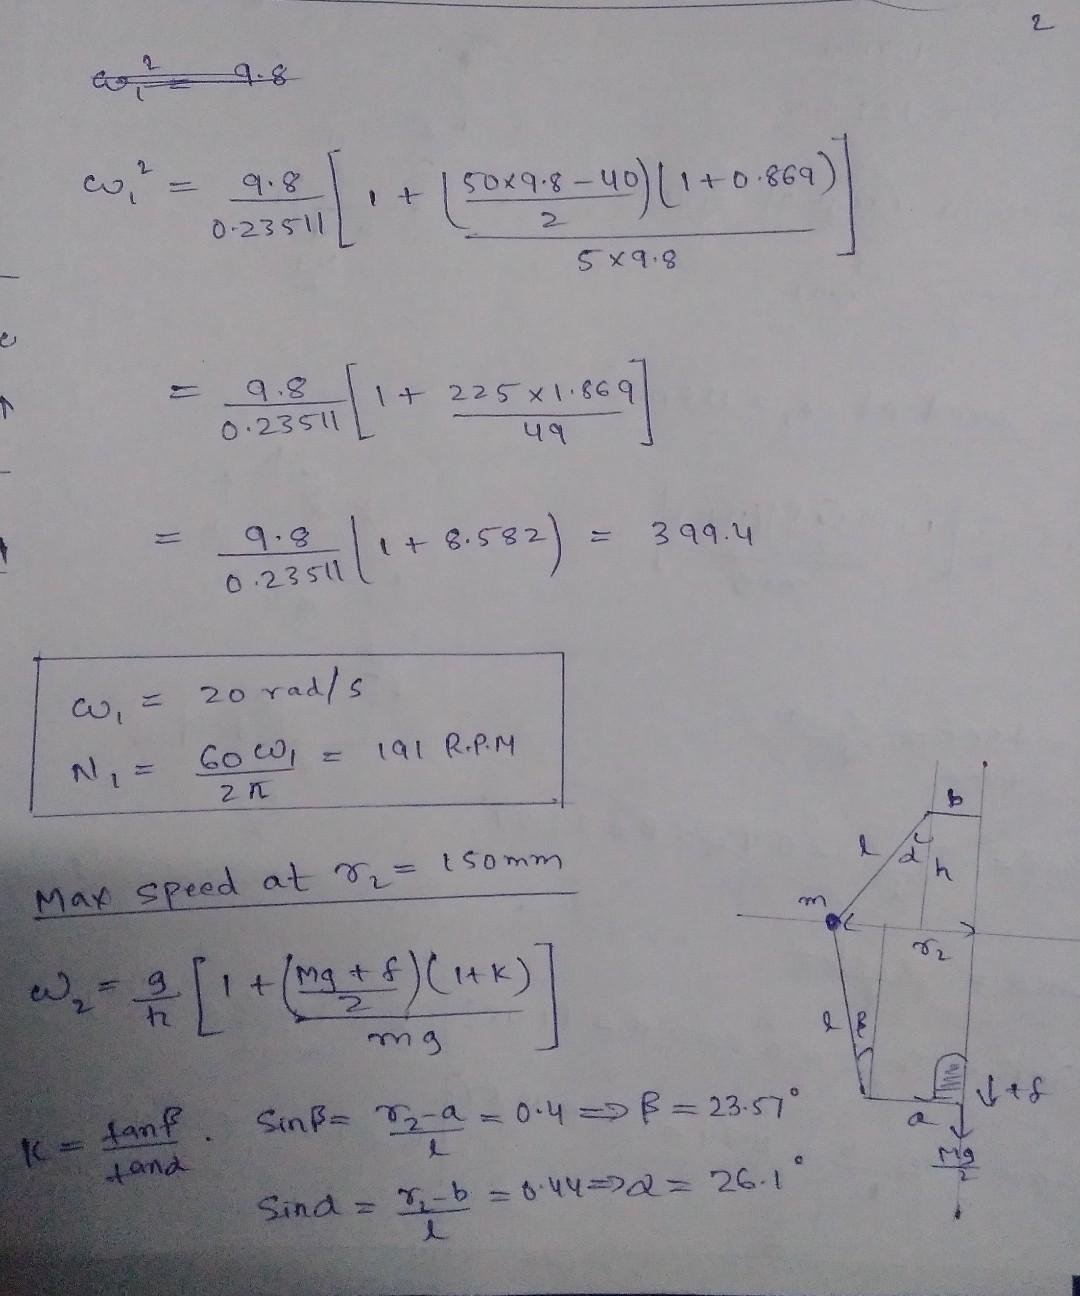 2
ω₁² = 9.8
ω₁² = 9.8/0.23511 [1 + ((50×9.8-40)/2)(1+0.869)/(5×9.8)]
= 9.8/0.23511 [1 + 225×1.869/49]
= 9.8/0.23511 (1 + 8.582) = 399.4
ω₁ = 20 rad/s
N₁ = 60ω₁/2π = 191 R.P.M
Max speed at r₂ = 150mm
ω₂ = g/h [1 + ((Mg+f)/2)(1+K)/mg]
K = tanβ/tanα . Sinβ = (r₂-a)/l = 0.4 => β = 23.57°
Sinα = (r₂-b)/l = 0.44 => α = 26.1°
b
l α h
m
r₂
l β
a ↓+f
Mg/2